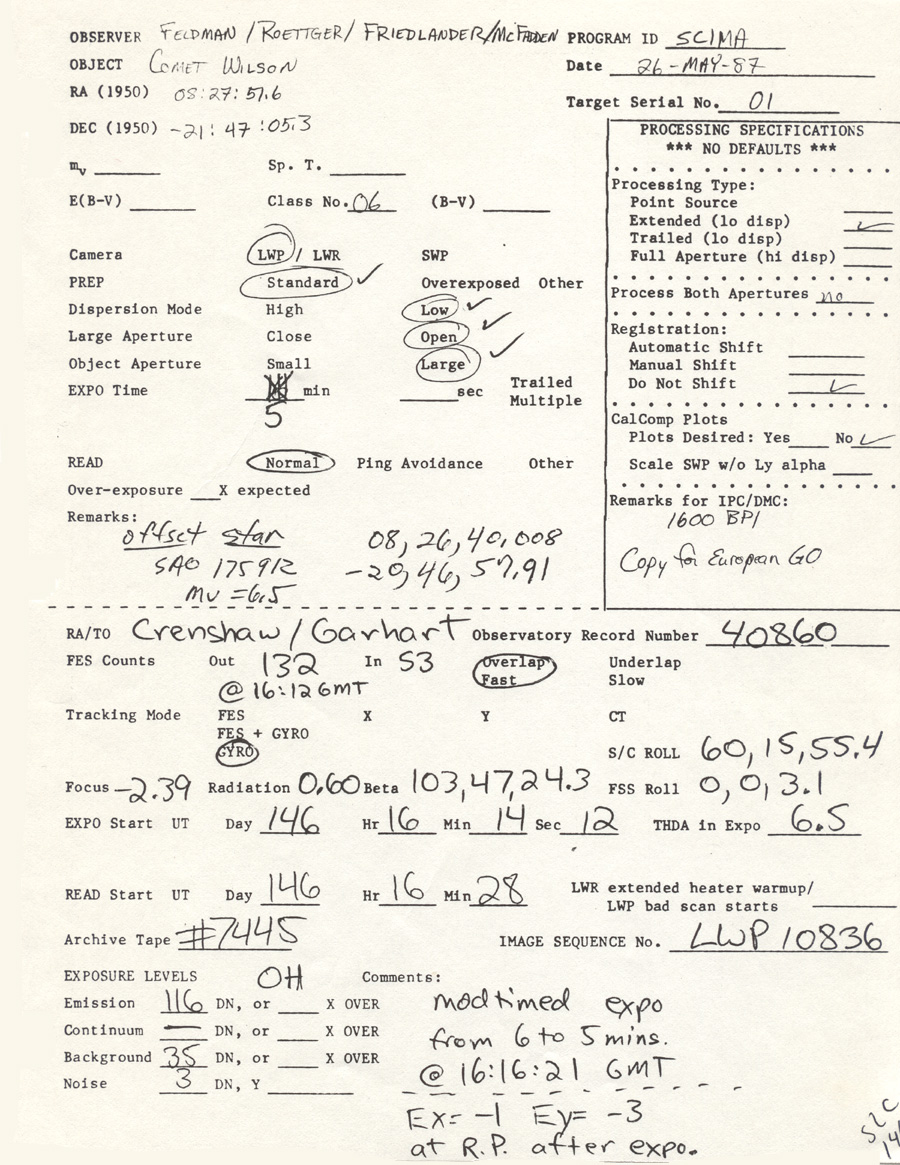 OBSERVER FELDMAN / ROETTGER / FRIEDLANDER/McFADDEN PROGRAM ID SCIMA
OBJECT COMET WILSON Date 26-MAY-87
RA (1950) 08:27:57.6
Target Serial No. 01
DEC (1950) -21:47:05.3
PROCESSING SPECIFICATIONS
*** NO DEFAULTS ***
mv ____ Sp. T. ____
Processing Type:
Point Source ____
E(B-V) ____ Class No. 06 (B-V) ____
Extended (lo disp) ✓
Trailed (lo disp) ____
Full Aperture (hi disp) ____
Camera LWP / LWR SWP
PREP Standard ✓ Overexposed Other
Process Both Apertures no
Dispersion Mode High Low ✓
Registration:
Large Aperture Close Open ✓
Automatic Shift ____
Object Aperture Small Large ✓
Manual Shift ____
Do Not Shift ✓
EXPO Time ____ min ____ sec Trailed
Multiple
5
CalComp Plots
Plots Desired: Yes ____ No ✓
READ Normal Ping Avoidance Other
Scale SWP w/o Ly alpha ____
Over-exposure ____ X expected
Remarks for IPC/DMC:
1600 BPI
Copy for European GO
Remarks:
offset star 08, 26, 40, 008
SAO 175912 -20, 46, 57.91
mv = 6.5
RA/TO Crenshaw / Garhart Observatory Record Number 40860
FES Counts Out 132 In 53 Overlap Underlap
Fast Slow
@ 16:12 GMT
Tracking Mode FES X Y CT
FES + GYRO
GYRO S/C ROLL 60, 15, 55.4
Focus -2.39 Radiation 0.60 Beta 103, 47, 24.3 FSS Roll 0, 0, 3.1
EXPO Start UT Day 146 Hr 16 Min 14 Sec 12 THDA in Expo 6.5
READ Start UT Day 146 Hr 16 Min 28 LWR extended heater warmup/
LWP bad scan starts ____
Archive Tape #7445 IMAGE SEQUENCE No. LWP 10836
EXPOSURE LEVELS OH Comments:
Emission 116 DN, or ____ X OVER
Continuum — DN, or ____ X OVER
Background 35 DN, or ____ X OVER
Noise 3 DN, Y ____
modtimed expo
from 6 to 5 mins.
@ 16:16:21 GMT
Ex= -1 Ey= -3
at R.P. after expo.